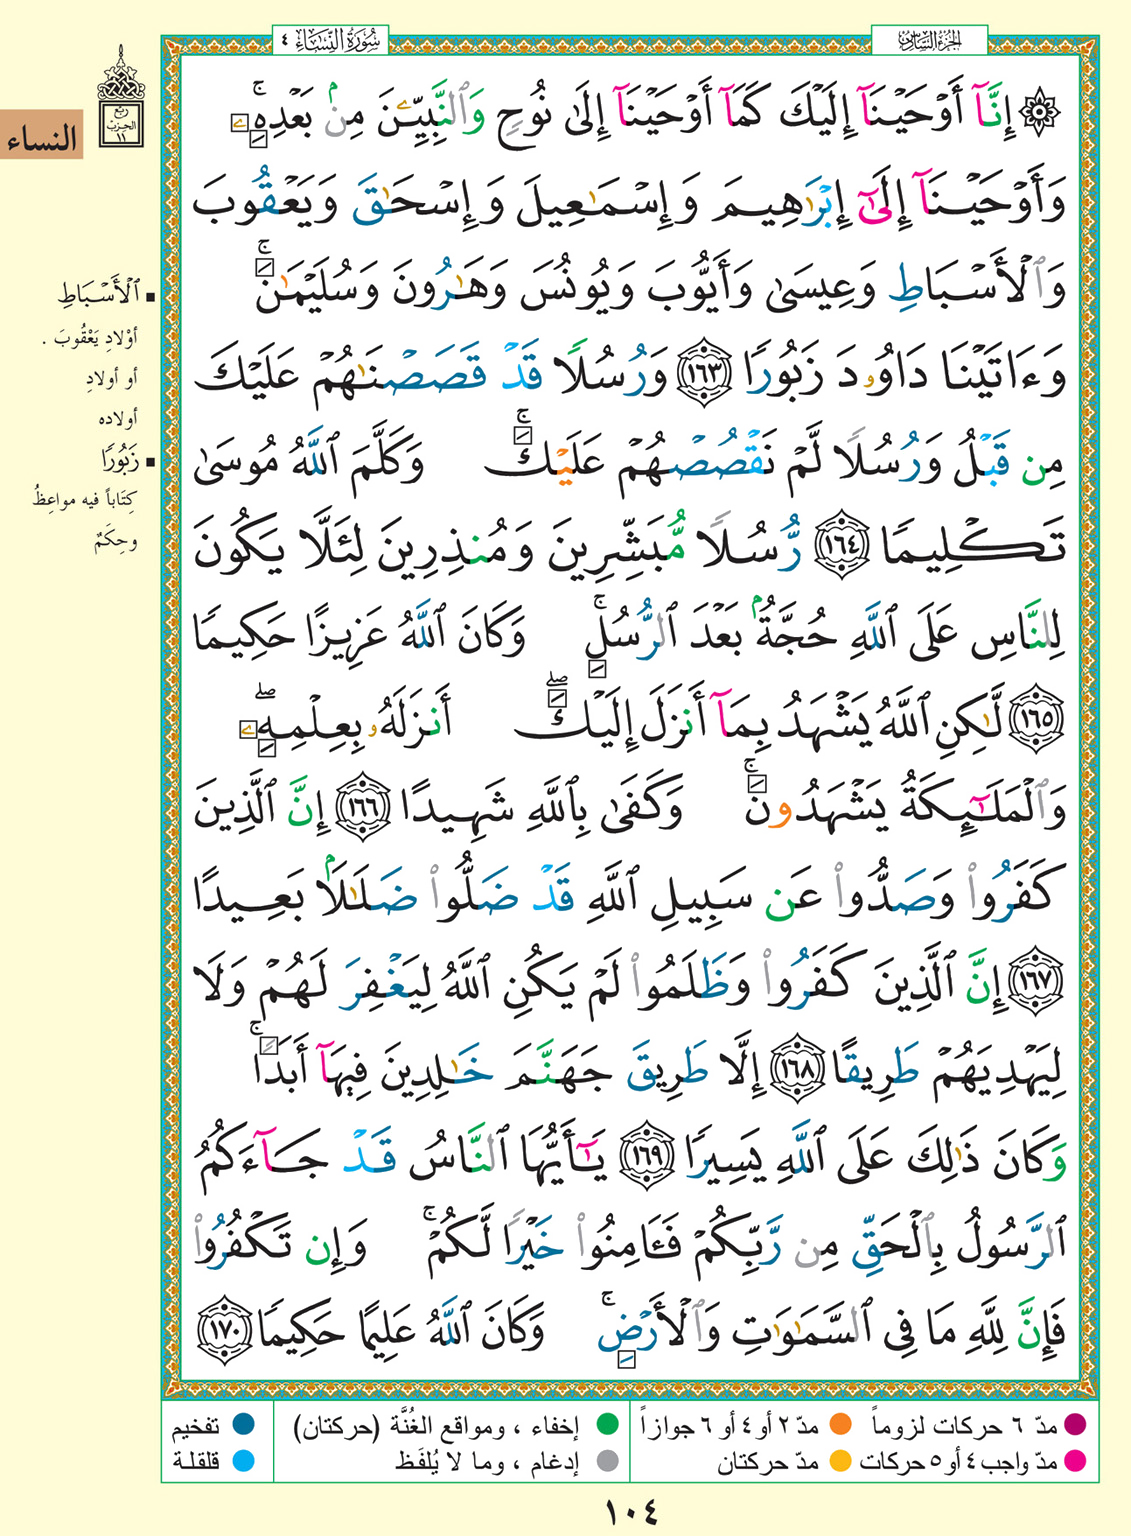 سُورَةُ النِّسَاءِ ٤
الجزء السادس
ربع
الحزب
١١
النساء
۞ إِنَّآ أَوْحَيْنَآ إِلَيْكَ كَمَآ أَوْحَيْنَآ إِلَىٰ نُوحٍ وَٱلنَّبِيِّـۧنَ مِنۢ بَعْدِهِۦۚ
وَأَوْحَيْنَآ إِلَىٰٓ إِبْرَٰهِيمَ وَإِسْمَٰعِيلَ وَإِسْحَٰقَ وَيَعْقُوبَ
وَٱلْأَسْبَاطِ وَعِيسَىٰ وَأَيُّوبَ وَيُونُسَ وَهَٰرُونَ وَسُلَيْمَٰنَۚ
وَءَاتَيْنَا دَاوُۥدَ زَبُورًا ١٦٣ وَرُسُلًا قَدْ قَصَصْنَٰهُمْ عَلَيْكَ
مِن قَبْلُ وَرُسُلًا لَّمْ نَقْصُصْهُمْ عَلَيْكَۚ وَكَلَّمَ ٱللَّهُ مُوسَىٰ
تَكْلِيمًا ١٦٤ رُّسُلًا مُّبَشِّرِينَ وَمُنذِرِينَ لِئَلَّا يَكُونَ
لِلنَّاسِ عَلَى ٱللَّهِ حُجَّةُۢ بَعْدَ ٱلرُّسُلِۚ وَكَانَ ٱللَّهُ عَزِيزًا حَكِيمًا
١٦٥ لَّٰكِنِ ٱللَّهُ يَشْهَدُ بِمَآ أَنزَلَ إِلَيْكَۖ أَنزَلَهُۥ بِعِلْمِهِۦۖ
وَٱلْمَلَٰٓئِكَةُ يَشْهَدُونَۚ وَكَفَىٰ بِٱللَّهِ شَهِيدًا ١٦٦ إِنَّ ٱلَّذِينَ
كَفَرُوا۟ وَصَدُّوا۟ عَن سَبِيلِ ٱللَّهِ قَدْ ضَلُّوا۟ ضَلَٰلًۢا بَعِيدًا
١٦٧ إِنَّ ٱلَّذِينَ كَفَرُوا۟ وَظَلَمُوا۟ لَمْ يَكُنِ ٱللَّهُ لِيَغْفِرَ لَهُمْ وَلَا
لِيَهْدِيَهُمْ طَرِيقًا ١٦٨ إِلَّا طَرِيقَ جَهَنَّمَ خَٰلِدِينَ فِيهَآ أَبَدًاۚ
وَكَانَ ذَٰلِكَ عَلَى ٱللَّهِ يَسِيرًا ١٦٩ يَٰٓأَيُّهَا ٱلنَّاسُ قَدْ جَآءَكُمُ
ٱلرَّسُولُ بِٱلْحَقِّ مِن رَّبِّكُمْ فَـَٔامِنُوا۟ خَيْرًا لَّكُمْۚ وَإِن تَكْفُرُوا۟
فَإِنَّ لِلَّهِ مَا فِى ٱلسَّمَٰوَٰتِ وَٱلْأَرْضِۚ وَكَانَ ٱللَّهُ عَلِيمًا حَكِيمًا ١٧٠
▪ ٱلْأَسْبَاطِ
أوْلادِ يَعْقُوبَ .
أو أولادِ
أولاده
▪ زَبُورًا
كِتَاباً فيه مواعِظُ
وحِكَمٌ
مدّ ٦ حركات لزوماً
مدّ ٢ أو ٤ أو ٦ جوازاً
إخفاء ، ومواقع الغُنَّة (حركتان)
تفخيم
مدّ واجب ٤ أو ٥ حركات
مدّ حركتان
إدغام ، وما لا يُلفَظ
قلقلة
١٠٤